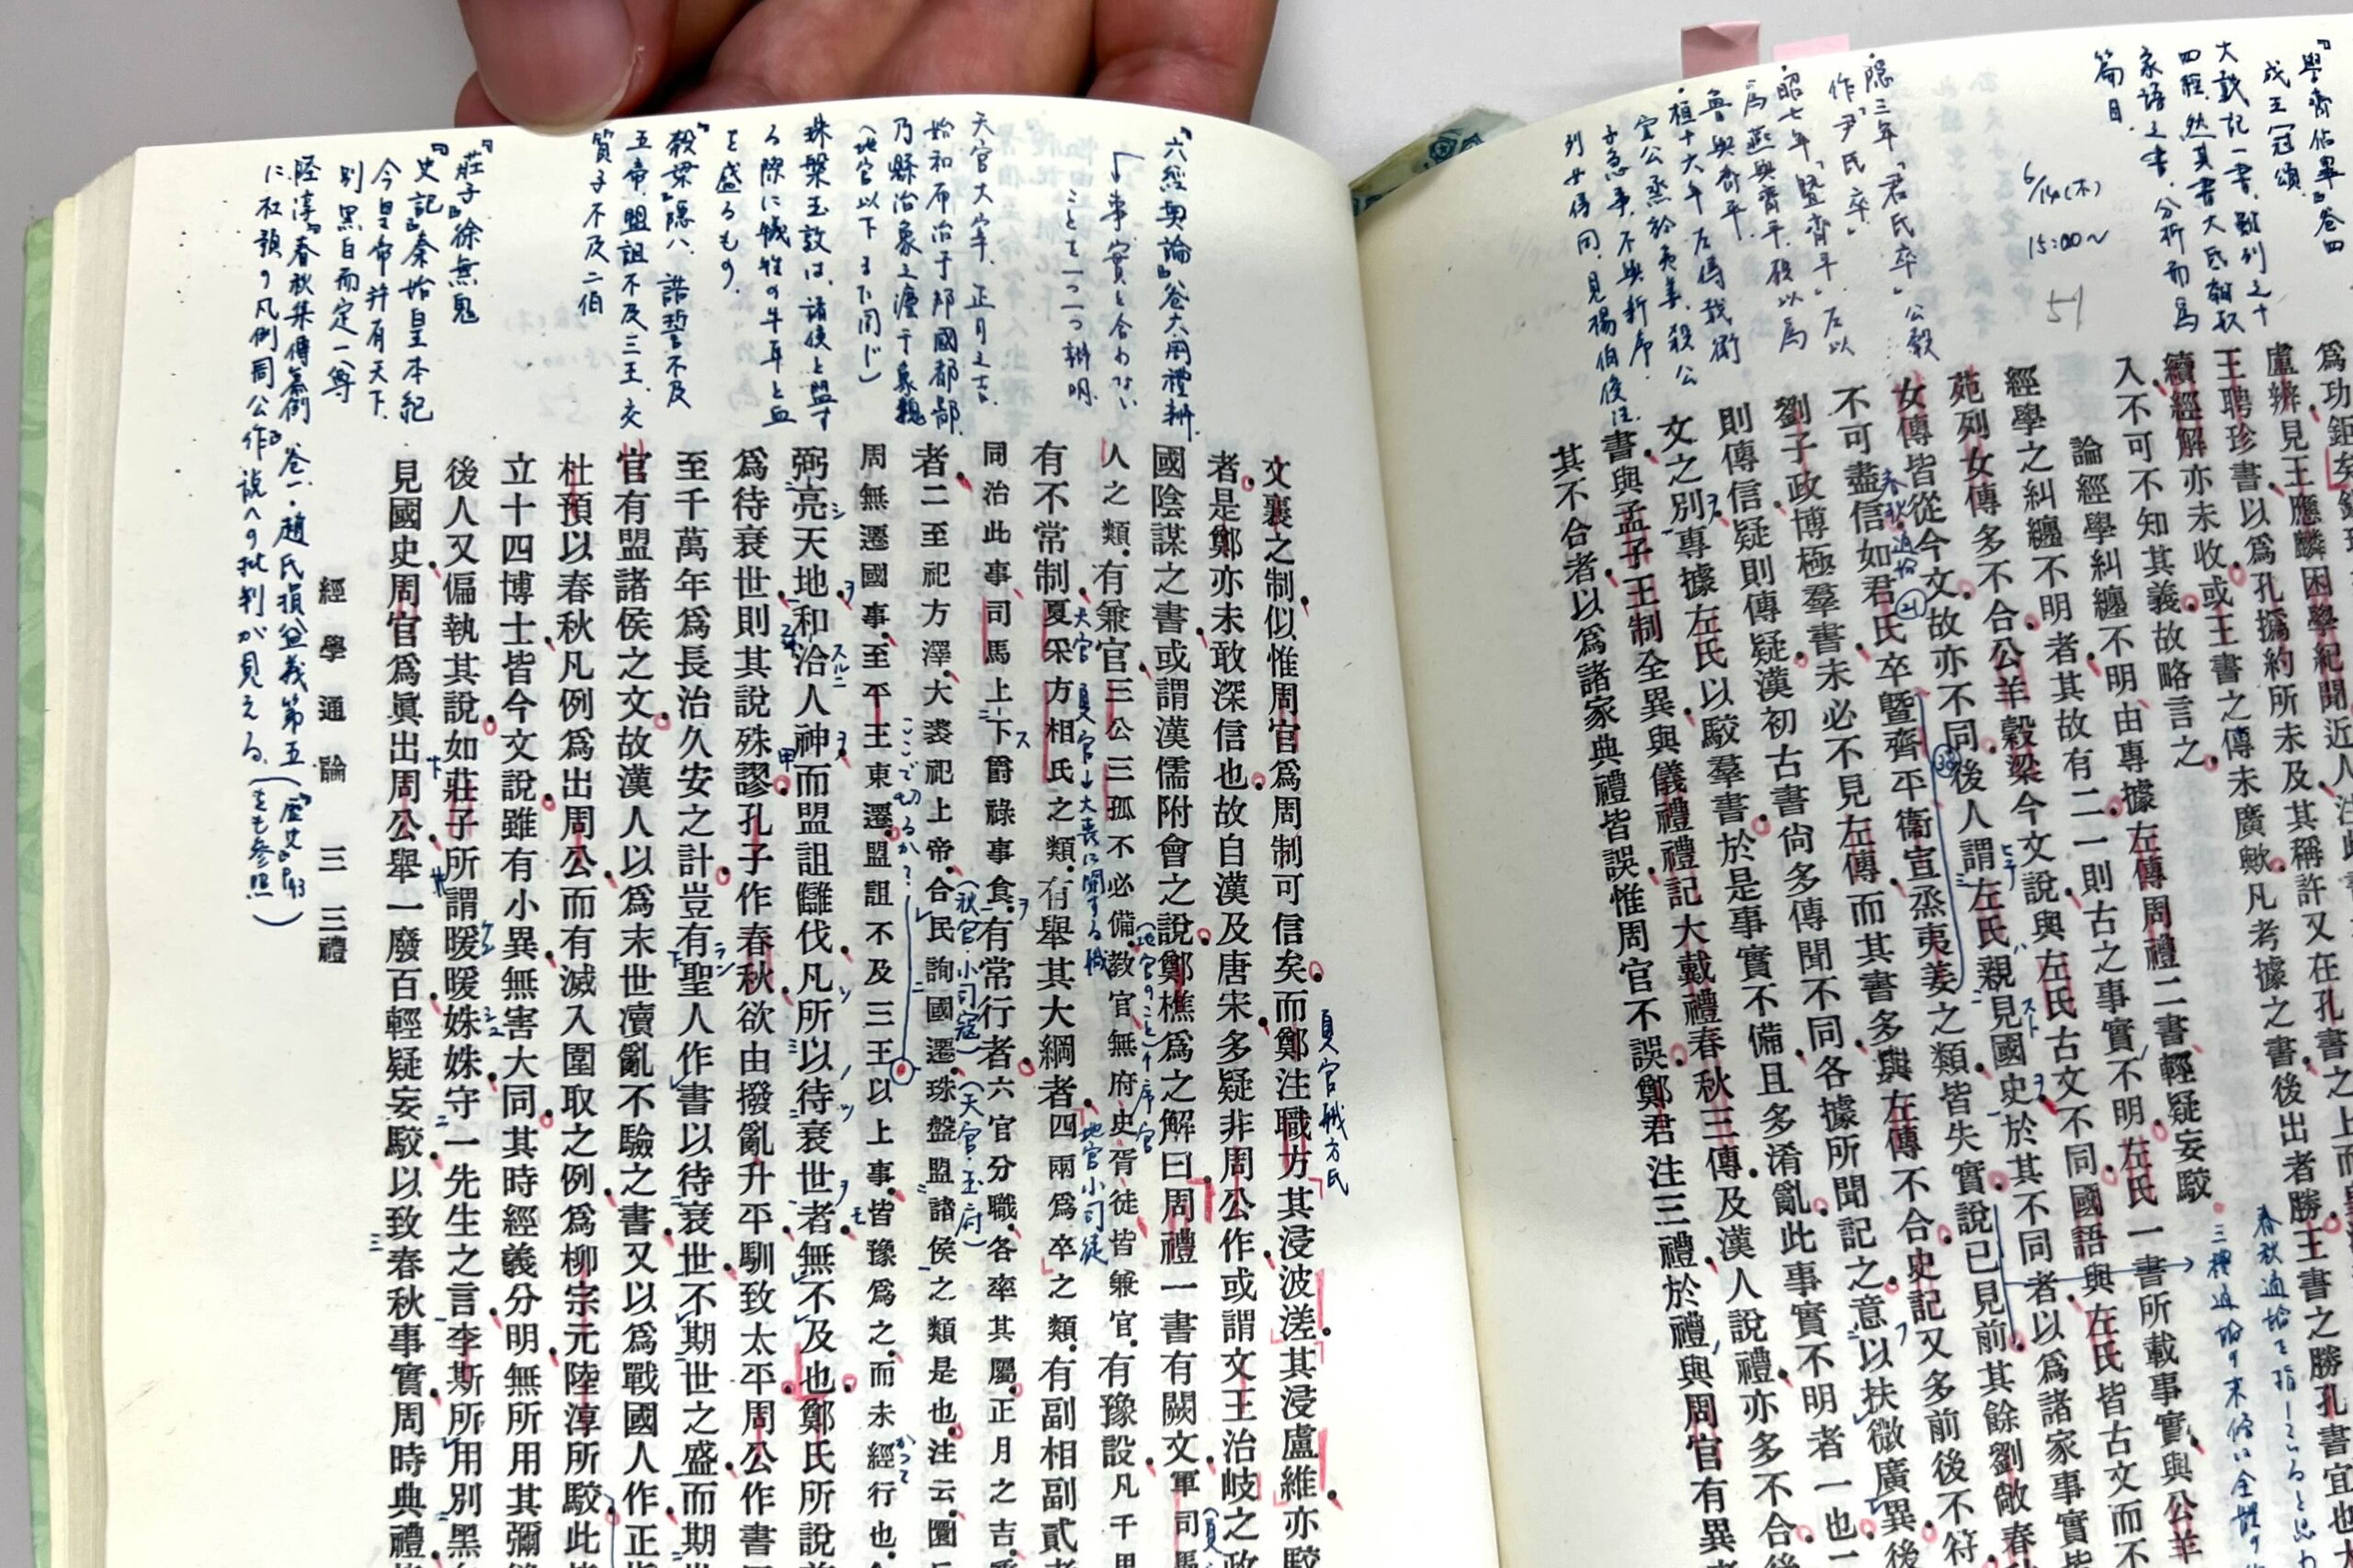 『學齋佔畢』卷四
成王冠頌
大戴記一書、雖列之十
四經、然其書大氐雜取
家語之書、分析而爲
篇目、
6/14(木)
15:00〜
51
隠三年「君氏卒」公穀
作「尹氏卒」
昭七年「曁齊平」左以
爲燕與齊平、穀以爲
魯與齊平、
桓十六年左傳載衛
宣公烝於夷姜、殺公
子急事、不與新序、
列女傳同、見楊伯俊注
王聘珍書以爲孔撝約所未及其稱許又在孔書之上而
續經解亦未收或王書之傳未廣歟凡考據之書後出者勝王書之勝孔書宜也
入不可不知其義故略言之
論經學糾纏不明由專據左傳周禮二書輕疑妄駁
經學之糾纏不明者其故有二一則古之事實不明左氏一書所載事實與公羊
苑列女傳多不合公羊穀梁今文說與左氏古文不同國語與左氏皆古文而不
女傳皆從今文故亦不同後人謂左氏親見國史於其不同者以爲諸家事實
不可盡信如君氏卒曁齊平衞宣烝夷姜之類皆失實說已見前其餘劉敞春
劉子政博極羣書未必不見左傳而其書多與左傳不合史記又多前後不符
則傳信疑則傳疑漢初古書尙多傳聞不同各據所聞記之意以扶微廣異後
文之別專據左氏以駁羣書於是事實不備且多淆亂此事實不明者一也
書與孟子王制全異與儀禮禮記大戴禮春秋三傳及漢人說禮亦多不合
其不合者以爲諸家典禮皆誤惟周官不誤鄭君注三禮於禮與周官有異
春秋通論㉑
㊳
春秋通論を指しているとも
三禮通論の末條に全體の
『六經奧論』卷六周禮辨
「事實と合わない
ことを一つ一つ辨明
天官大宰、正月之吉、
始和布治于邦國都鄙、
乃縣治象之灋于象魏
(地官以下また同じ)
珠槃玉敦は、諸侯と盟す
る際に犠牲の牛耳と血
を盛るもの、
『穀梁』隠八、誥誓不及
五帝、盟詛不及三王、交
質子不及二伯
『莊子』徐無鬼
『史記』秦始皇本紀
今皇帝并有天下、
別黑白而定一尊
陸淳『春秋集傳纂例』卷一・趙氏損益義第五(『歷史』P.43
に杜預の凡例周公作說への批判が見える。(をも參照)
文襄之制似惟周官爲周制可信矣而鄭注職方其浸波溠其浸盧維亦駁
者是鄭亦未敢深信也故自漢及唐宋多疑非周公作或謂文王治岐之政
國陰謀之書或謂漢儒附會之說鄭樵爲之解曰周禮一書有闕文軍司馬
人之類有兼官三公三孤不必備敎官無府史胥徒皆兼官有豫設凡千里
有不常制夏采方相氏之類有舉其大綱者四兩爲卒之類有副相副貳者
同治此事司馬上下爵祿事食有常行者六官分職各率其屬正月之吉
者二至祀方澤大裘祀上帝合民詢國遷珠盤盟諸侯之類是也注云圜丘
周無遷國事至平王東遷盟詛不及三王以上事皆豫爲之而未經行也
弼亮天地和洽人神而盟詛讎伐凡所以待衰世者無不及也鄭氏所說
爲待衰世則其說殊謬孔子作春秋欲由撥亂升平馴致太平周公作書
至千萬年爲長治久安之計豈有聖人作書以待衰世不期世之盛而期
官有盟諸侯之文故漢人以爲末世凟亂不驗之書又以爲戰國人作
杜預以春秋凡例爲出周公而有滅入圍取之例爲柳宗元陸淳所駁此
立十四博士皆今文說雖有小異無害大同其時經義分明無所用其彌
後人又偏執其說如莊子所謂暖暖姝姝守一先生之言李斯所用別黑
見國史周官爲眞出周公舉一廢百輕疑妄駁以致春秋事實周時典禮
夏官職方氏
天官
夏官
大喪に関する職
(地官のこと)
序官
地官小司徒
(秋官・小司寇)
(天官・玉府)
ここで切るか?
かつて
經學通論 三 三禮